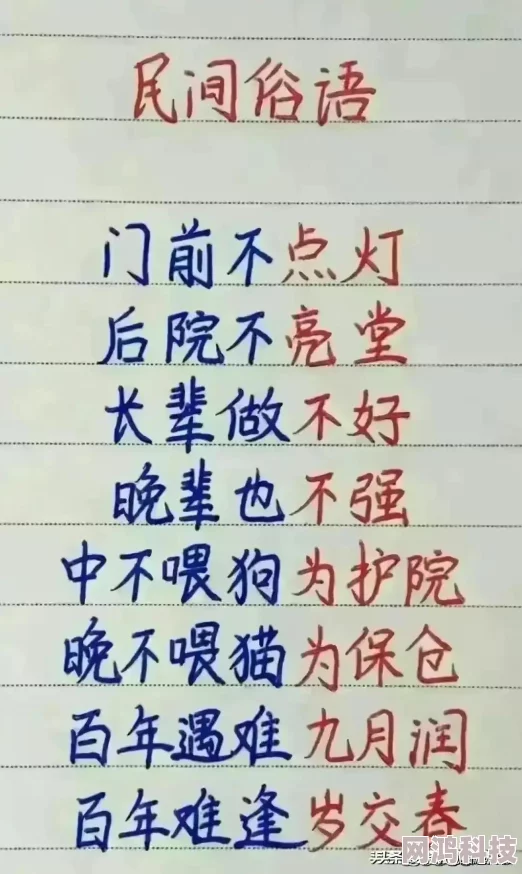 民间俗语
门前不点灯
后院不亮堂
长辈做不好
晚辈也不强
中不喂狗为护院
晚不喂猫为保仓
百年遇难九月润
百年难逢岁交春
网鸿科技